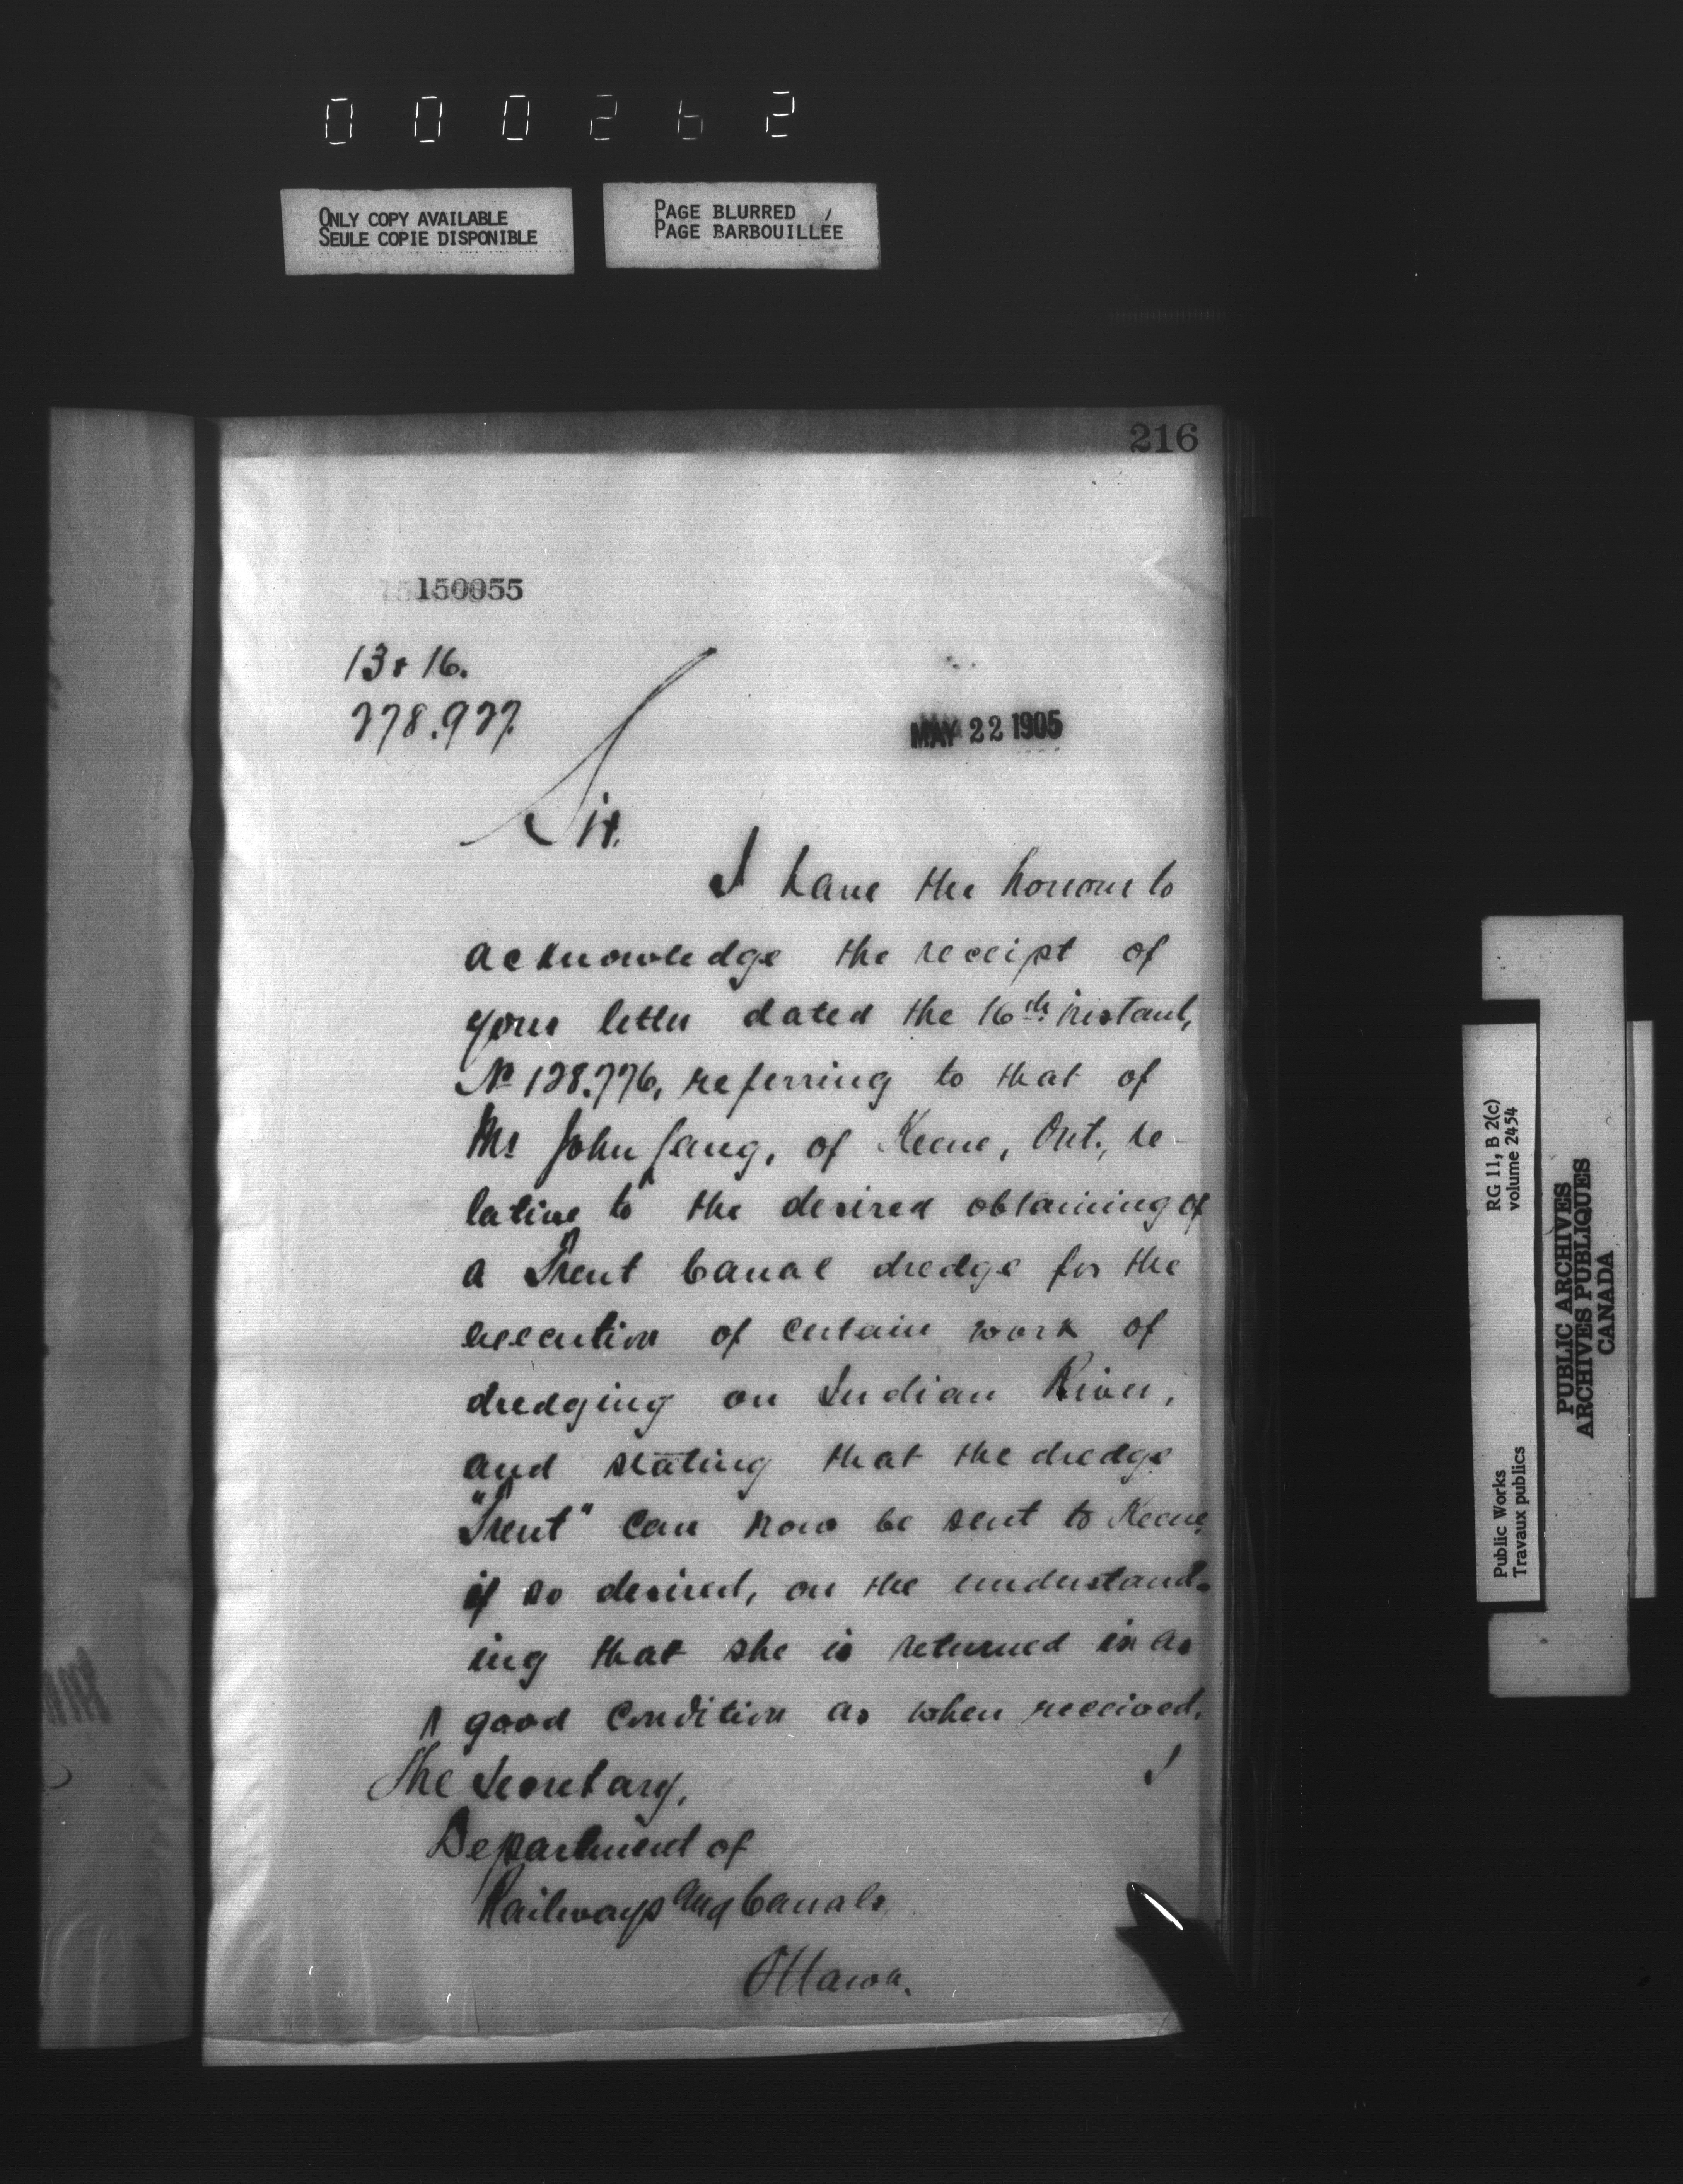 000262
ONLY COPY AVAILABLE
SEULE COPIE DISPONIBLE
PAGE BLURRED
PAGE BARBOUILLÉE
216
150055
13 & 16.
278.927.
MAY 22 1905
Sir.
I have the honour to
acknowledge the receipt of
your letter dated the 16th instant,
No 128.776, referring to that of
Mr John Lang, of Keene, Ont., re-
lative to the desired obtaining of
a Trent Canal dredge for the
execution of certain work of
dredging on Indian River,
and stating that the dredge
"Trent" can now be sent to Keene
if so desired, on the understand-
ing that she is returned in as
good condition as when received.
I
The Secretary,
Department of
Railways and Canals
Ottawa.
RG 11, B 2(c)
volume 2454
Public Works
Travaux publics
PUBLIC ARCHIVES
ARCHIVES PUBLIQUES
CANADA